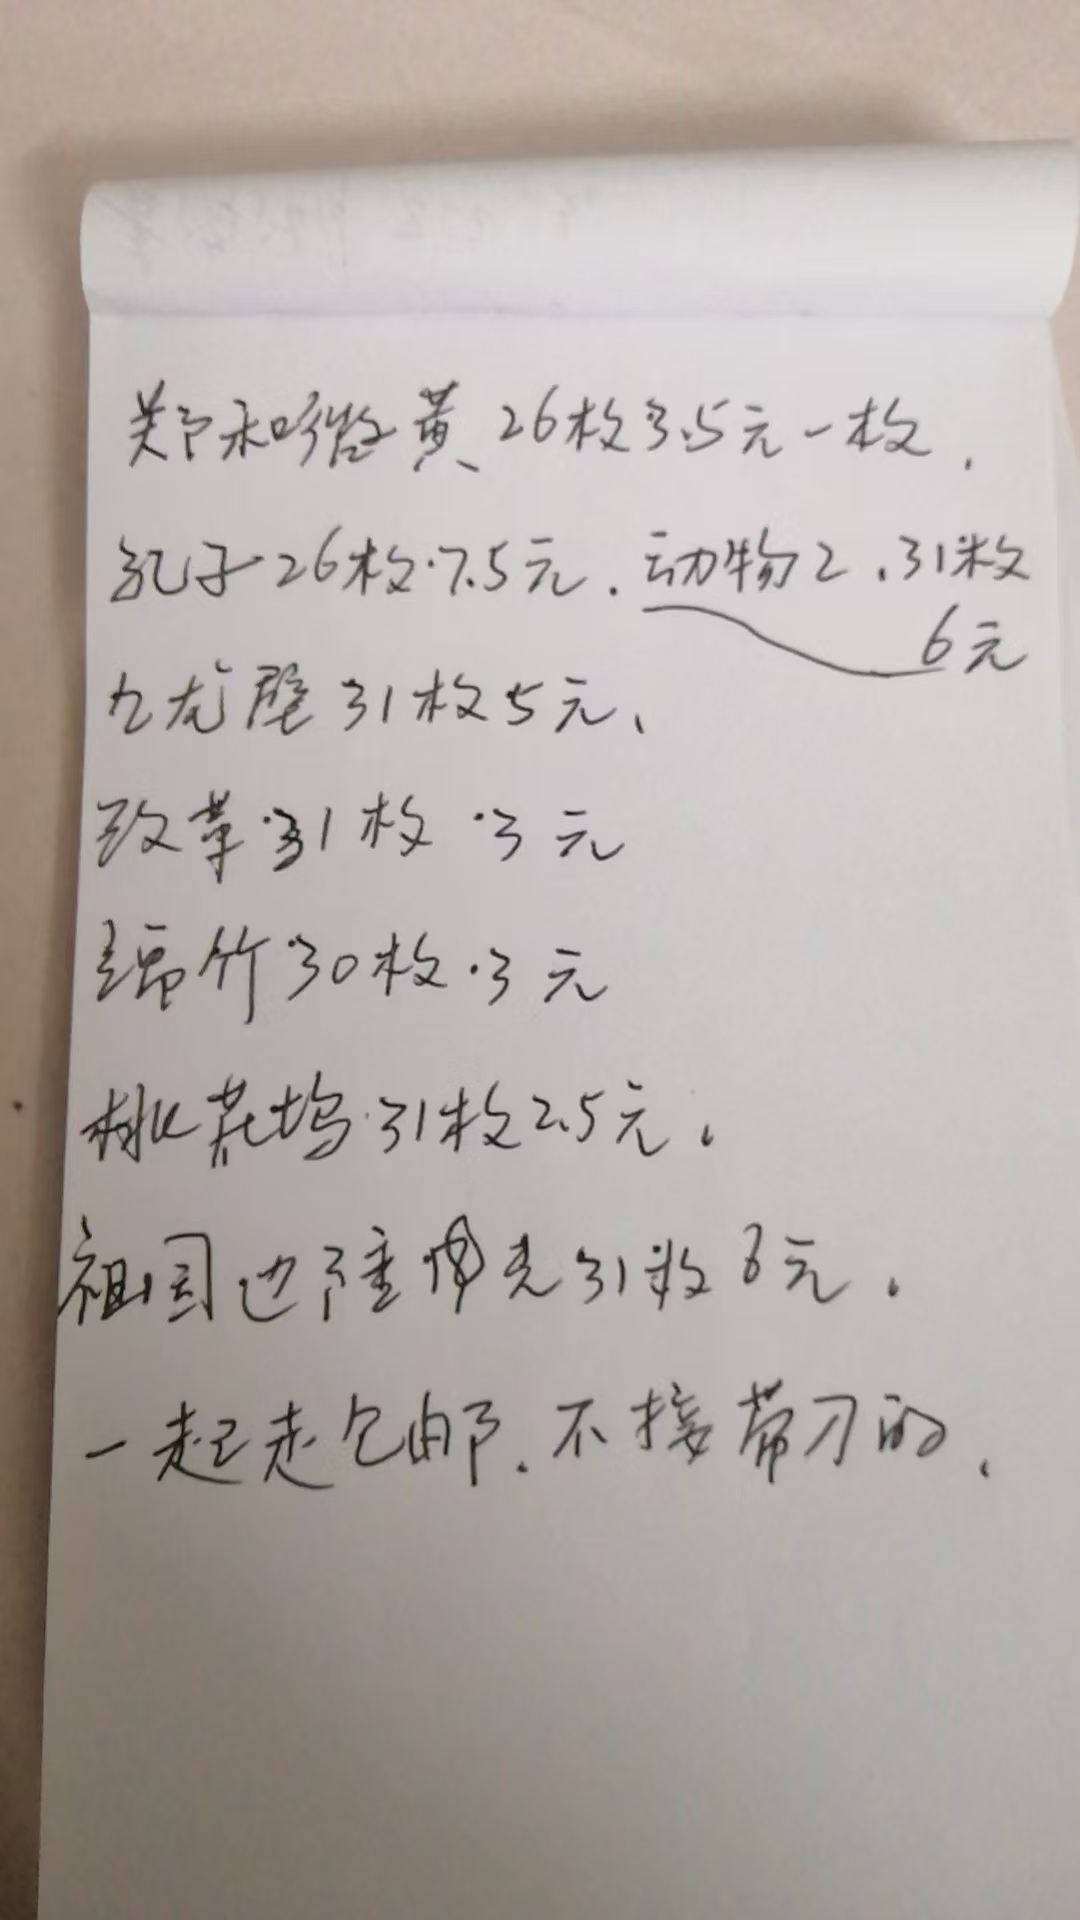 郑和略微黄、26枚3.5元一枚.
孔子26枚.7.5元.动物2.31枚
6元
九龙壁31枚5元、
改革.31枚.3元
瑞竹.30枚.3元
桃花坞.31枚2.5元.
祖国边陲风光31枚3元.
一起走包邮.不接带刀的、